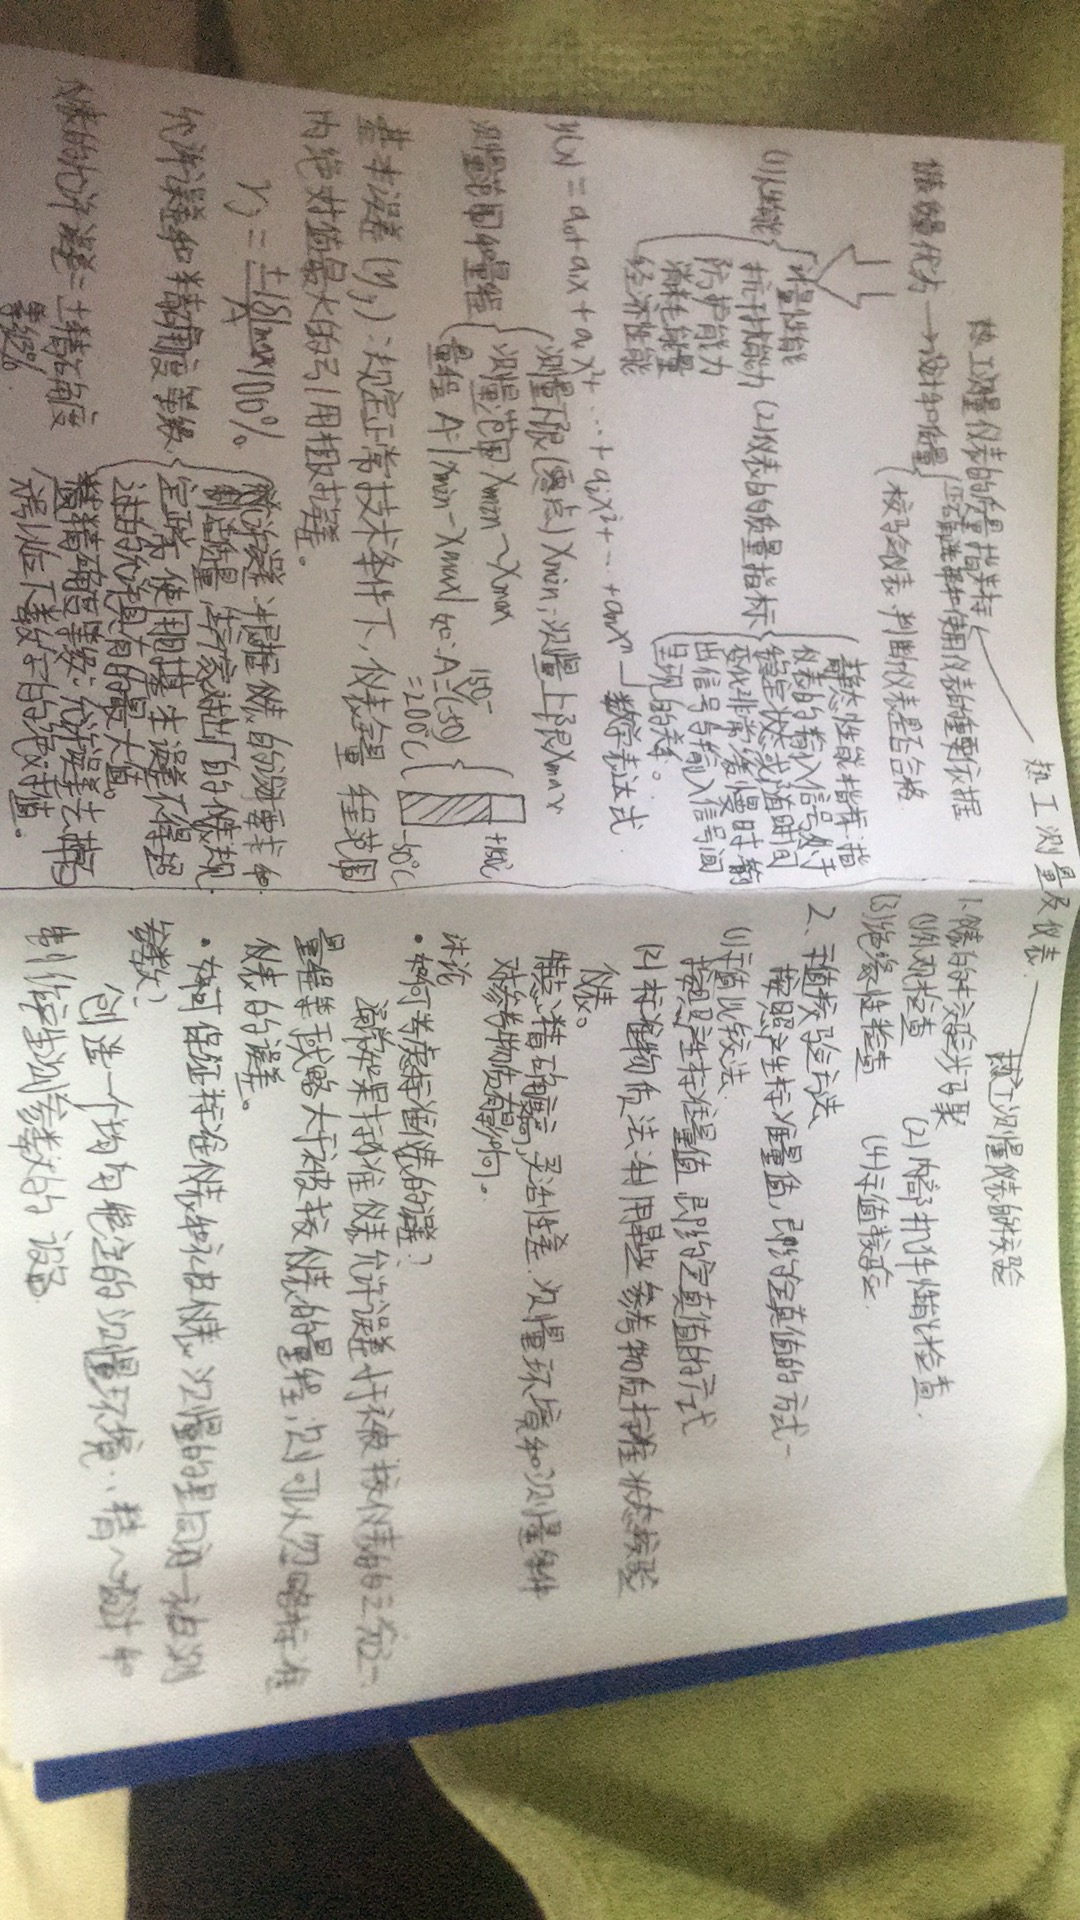 热工测量及仪表
热工测量仪表的质量指标
仪表质量优劣→设计和质量
正确选择和使用仪表的重要依据
校验仪表,判断仪表是否合格
(1)性能
计量性能
抗干扰能力
防护能力
消耗能量
经济性能
(2)仪表的质量指标
静态性能指标:指
仪表的输入信号处于
稳定状态或随时间
变化非常缓慢时,输
出信号与输入信号间
呈现的关系。
y(x)=a₀+a₁x+a₂x²+…+aᵢxⁱ+…+aₙxⁿ→数学表达式
测量范围和量程
测量下限(零点)Xmin,测量上限Xmax
测量范围 Xmin~Xmax
量程 A=|Xmin-Xmax| 如:A=150-(-50)
=200℃
+150℃
-50℃
基本误差(γj):规定正常技术条件下,仪表全量程范围
内绝对值最大的引用相对误差。
γj=±|δ|max/A×100%
允许误差和精确度等级
允许误差:根据仪表的设计要求和
制造质量,生产厂家对出厂的仪表规
定的,使用时其基本误差不得超
过的允许具有的最大值。
精确度等级:允许误差去掉
号后百分数分子的绝对值。
仪表的允许误差=±精确度
等级%
热工测量仪表的校验
1.仪表的校验步骤
(1)外观检查 (2)内部机件性能检查
(3)绝缘性检查 (4)示值校验
2、示值校验方法
按照产生标准量值,即约定真值的方式
(1)示值比较法
按照产生标准量值,即约定真值的方式
(2)标准物质法:利用某些参考物质标准状态校验
仪表。
特点:精确度高,灵活性差,测量环境和测量条件
对参考物质有影响。
讨论
·如何考虑标准仪表的误差?
通常如果标准仪表允许误差小于被校仪表的三分之一,
量程等于或略大于被校仪表的量程,则可以忽略标准
仪表的误差。
·如何保证标准仪表和被校仪表测量的是同一被测
参数?
创造一个均匀稳定的测量环境,精心设计和
制作产生被测参数的设备。